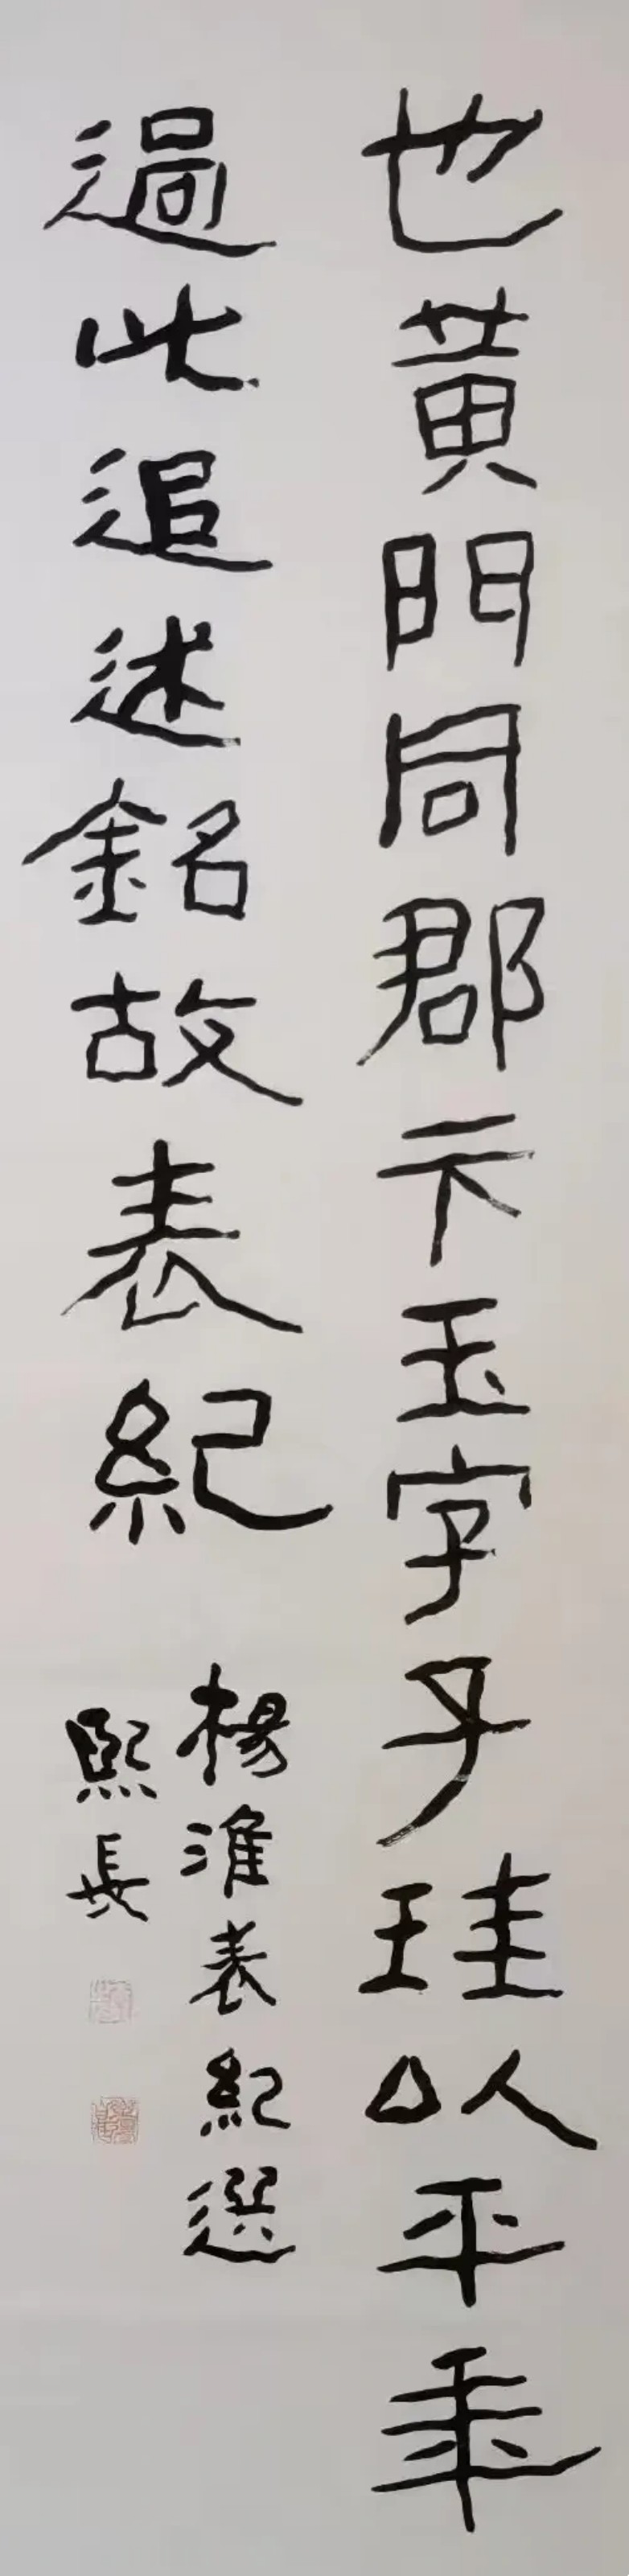 也黃門同郡卞玉字子珪以平年
過此追述銘故表紀
楊淮表紀選
熙長